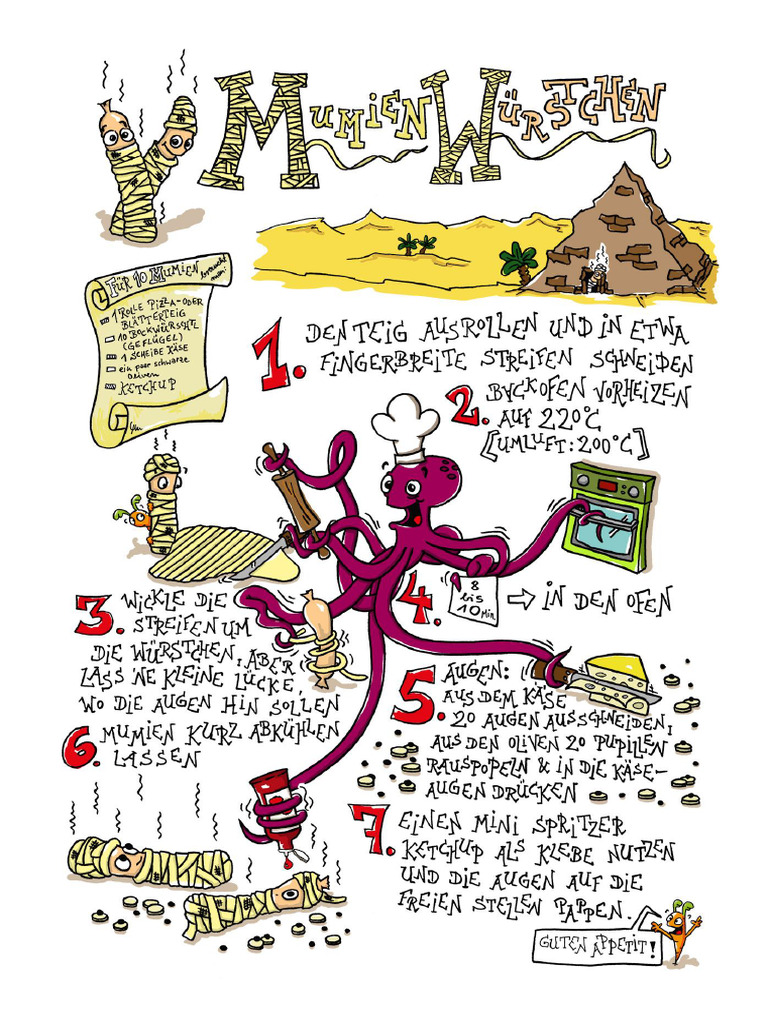 MUMIEN WÜRSTCHEN
FÜR 10 MUMIEN
1 ROLLE PIZZA- ODER
BLÄTTERTEIG
10 BOCKWÜRSTL
(GEFLÜGEL)
1 SCHEIBE KÄSE
ein paar schwarze
Oliven
KETCHUP
1. DEN TEIG AUSROLLEN UND IN ETWA
FINGERBREITE STREIFEN SCHNEIDEN
2. BACKOFEN VORHEIZEN
AUF 220°C
[UMLUFT: 200°C]
3. WICKLE DIE
STREIFEN UM
DIE WÜRSTCHEN, ABER
LASS 'NE KLEINE LÜCKE,
WO DIE AUGEN HIN SOLLEN
4. 8
bis
10 Min
⇨ IN DEN OFEN
5. AUGEN:
AUS DEM KÄSE
20 AUGEN AUSSCHNEIDEN,
AUS DEN OLIVEN 20 PUPILLEN
RAUSPOPELN & IN DIE KÄSE-
AUGEN DRÜCKEN
6. MUMIEN KURZ ABKÜHLEN
LASSEN
7. EINEN MINI SPRITZER
KETCHUP ALS KLEBE NUTZEN
UND DIE AUGEN AUF DIE
FREIEN STELLEN PAPPEN.
GUTEN APPETIT!